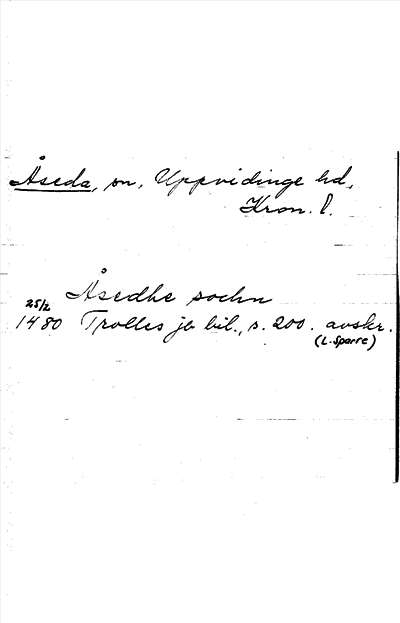 Åseda, sn, Uppvidinge hd,
Kron. l.
Åsedhe sochn
25/2
1480 Trolles jb bil., s. 200. avskr.
(L. Sparre)